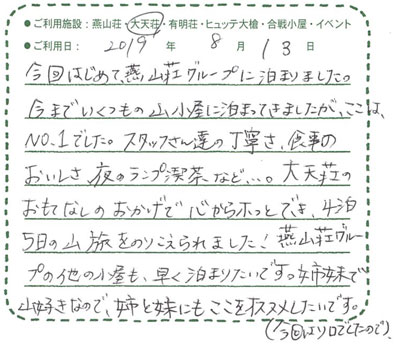 ●ご利用施設：燕山荘・大天荘・有明荘・ヒュッテ大槍・合戦小屋・イベント
●ご利用日：2019年8月13日
今回はじめて、燕山荘グループに泊まりました。
今までいくつもの山小屋に泊まってきましたが、ここは、
NO.1でした。スタッフさん達の丁寧さ、食事の
おいしさ、夜のランプ喫茶など…。大天荘の
おもてなしのおかげで心からホッとでき、4泊
5日の山旅をのりこえられました！燕山荘グルー
プの他の小屋も、早く泊まりたいです。姉妹で
山好きなので、姉と妹にもここをオススメしたいです。
(今回はソロでしたので)